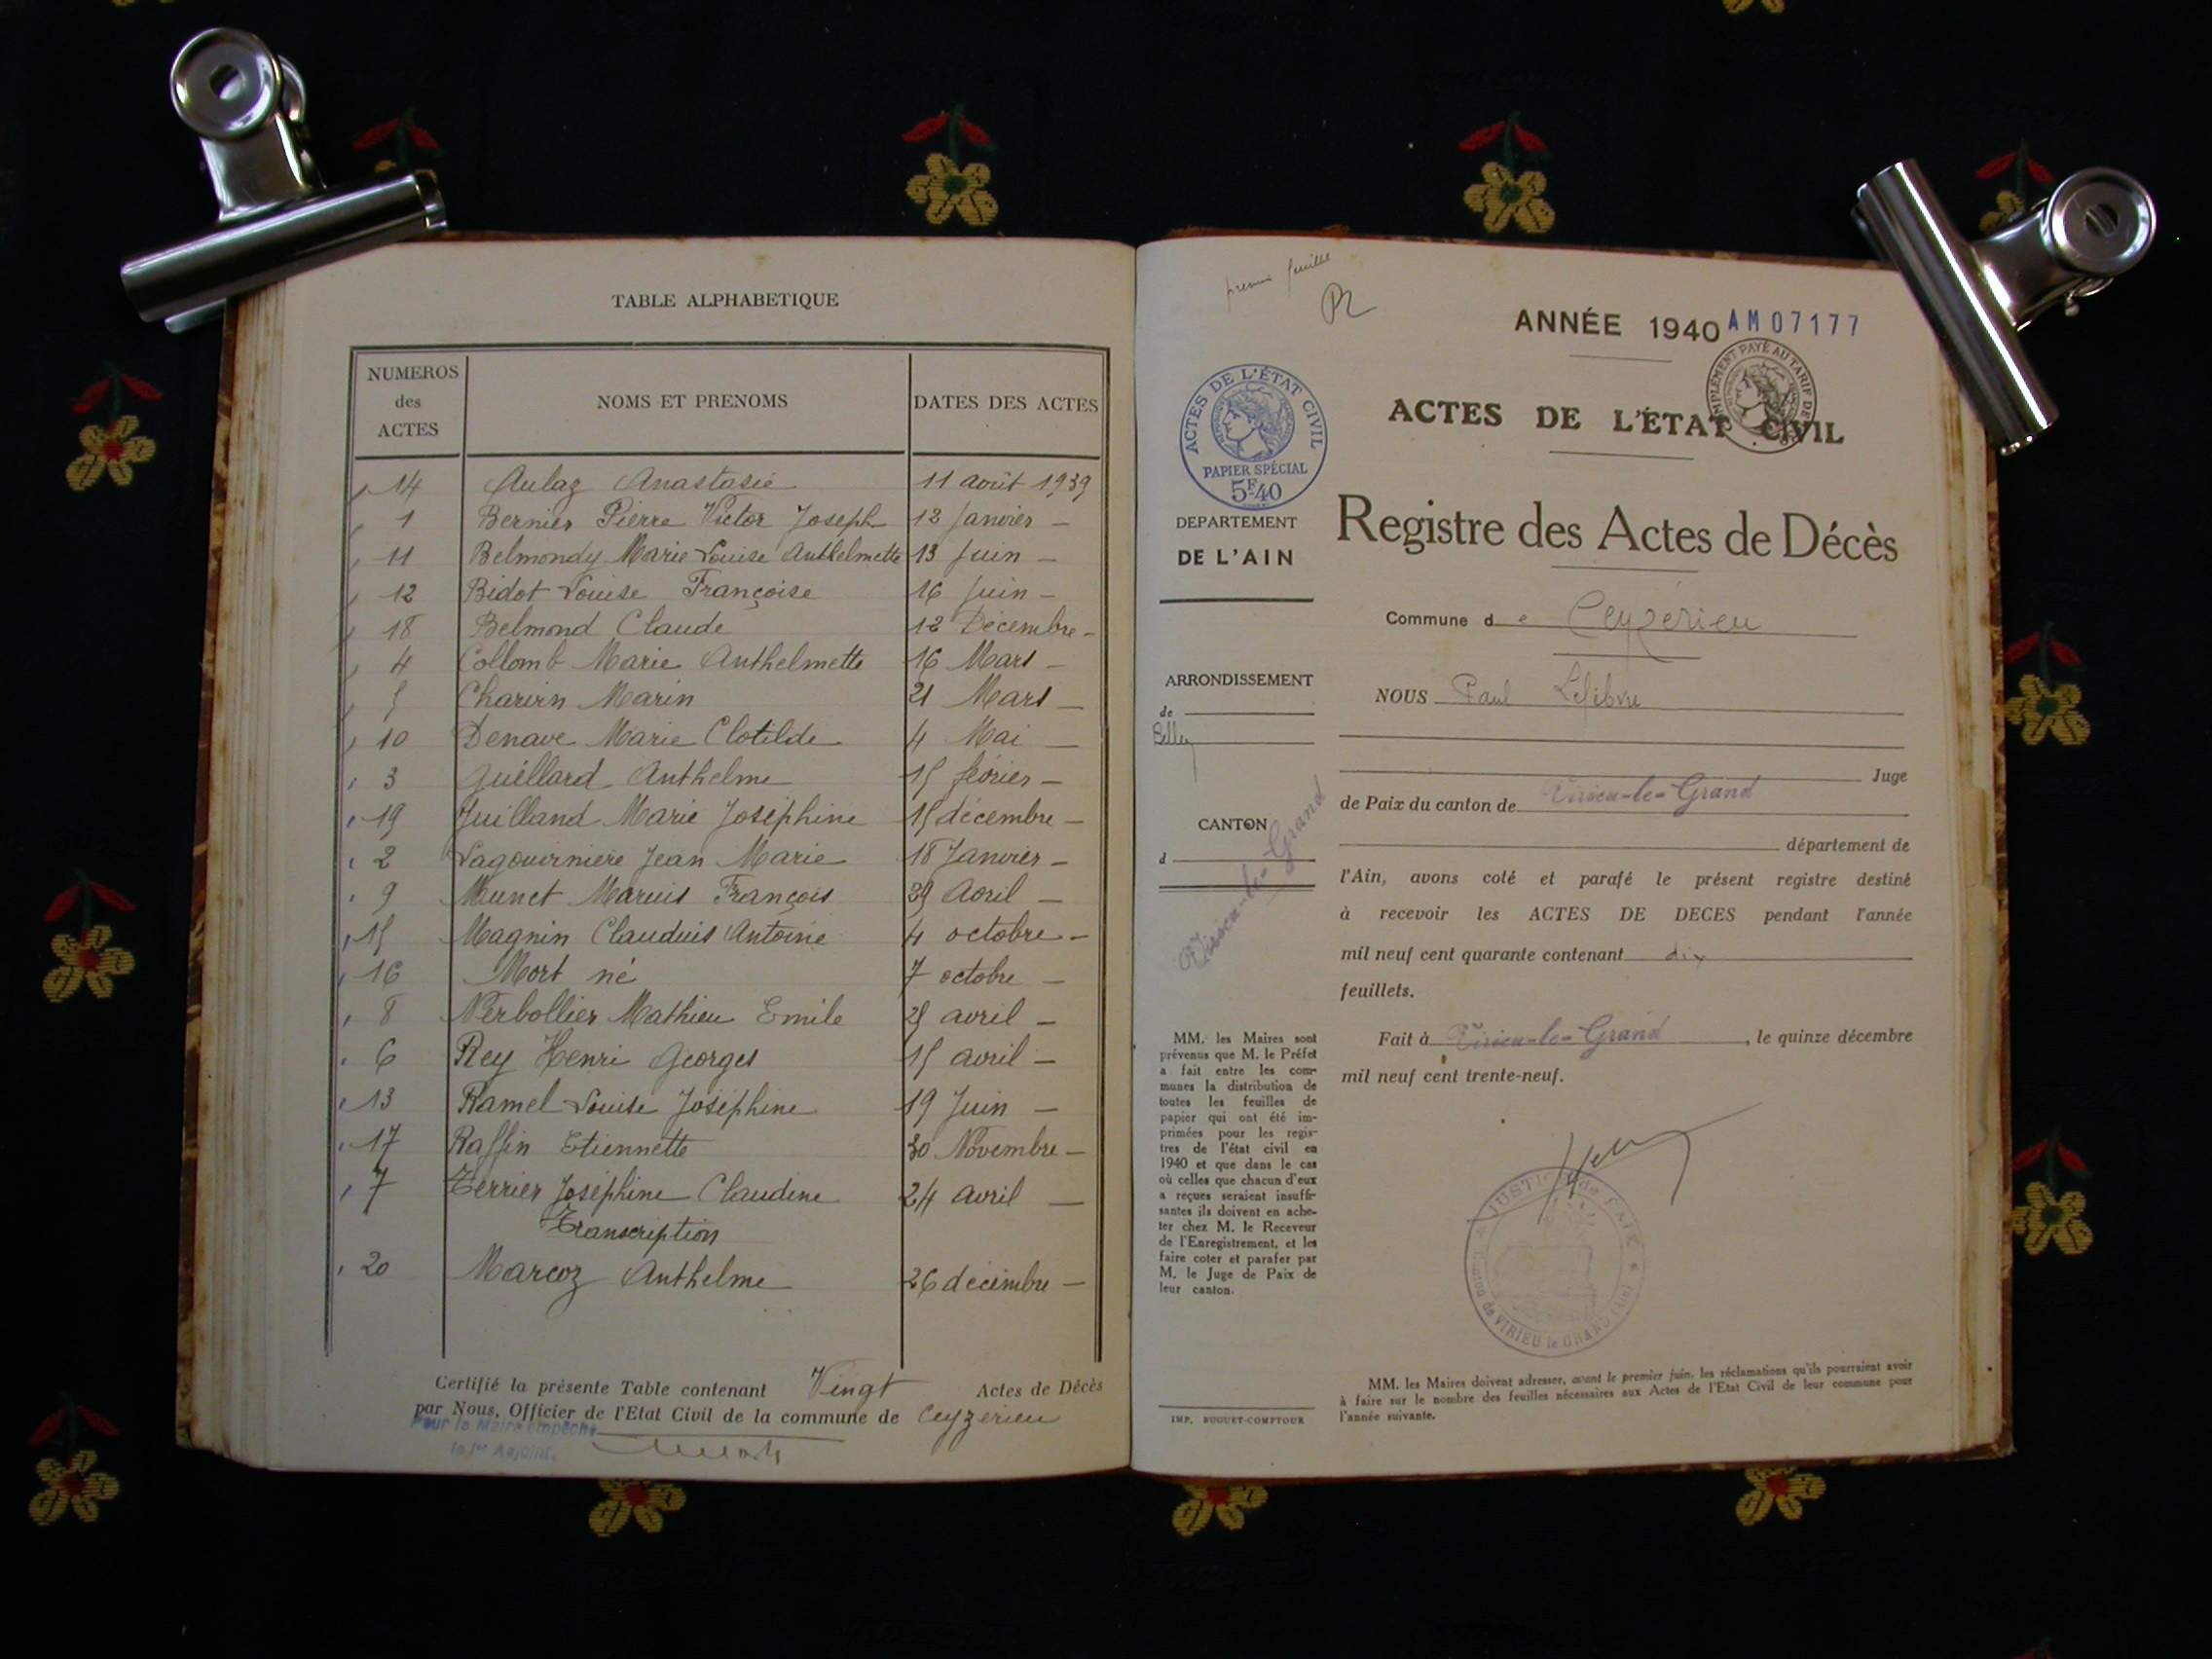 TABLE ALPHABETIQUE
NUMEROS
des
ACTES
NOMS ET PRENOMS
DATES DES ACTES
14 Aulaz Anastasie 11 août 1939
1 Bernier Pierre Victor Joseph 12 Janvier –
11 Belmondy Marie Louise Anthelmette 13 Juin –
12 Bidot Louise Françoise 16 Juin –
18 Belmond Claude 12 Décembre –
4 Collomb Marie Anthelmette 16 Mars –
5 Charvin Marin 21 Mars –
10 Denave Marie Clotilde 4 Mai –
3 Guillard Anthelme 15 février –
19 Juilland Marie Joséphine 15 décembre –
2 Lagouirniere Jean Marie 18 Janvier –
9 Munet Marius François 29 Avril –
15 Magnin Claudius Antoine 4 octobre –
16 Mort né 7 octobre –
8 Nerbollier Mathieu Emile 25 avril –
6 Rey Henri Georges 15 avril –
13 Ramel Louise Joséphine 19 Juin –
17 Raffin Etiennette 30 Novembre –
7 Terrier Joséphine Claudine 24 avril –
Transcription
20 Marcoz Anthelme 26 décembre –
Certifié la présente Table contenant Vingt Actes de Décès
par Nous, Officier de l'Etat Civil de la commune de Ceyzerieu
Pour le Maire empêché
le 1er Adjoint.
premier feuillet
ANNÉE 1940 AM07177
ACTES DE L'ÉTAT CIVIL
PAPIER SPÉCIAL
5F.40
ACTES DE L'ÉTAT CIVIL
Registre des Actes de Décès
DEPARTEMENT
DE L'AIN
ARRONDISSEMENT
de
Belley
CANTON
d
Virieu-le-Grand
MM. les Maires sont
prévenus que M. le Préfet
a fait entre les com-
munes la distribution de
toutes les feuilles de
papier qui ont été im-
primées pour les regis-
tres de l'état civil en
1940 et que dans le cas
où celles que chacun d'eux
a reçues seraient insuffi-
santes ils doivent en ache-
ter chez M. le Receveur
de l'Enregistrement, et les
faire coter et parafer par
M. le Juge de Paix de
leur canton.
IMP. BUGUET-COMPTOUR
Commune de Ceyzérieu
NOUS Paul Lefebvre
Juge
de Paix du canton de Virieu-le-Grand
département de
l'Ain, avons coté et parafé le présent registre destiné
à recevoir les ACTES DE DECES pendant l'année
mil neuf cent quarante contenant dix
feuillets.
Fait à Virieu-le-Grand, le quinze décembre
mil neuf cent trente-neuf.
JUSTICE de PAIX
Canton de VIRIEU le GRAND (Ain)
MM. les Maires doivent adresser, avant le premier juin, les réclamations qu'ils pourraient avoir
à faire sur le nombre des feuilles nécessaires aux Actes de l'Etat Civil de leur commune pour
l'année suivante.